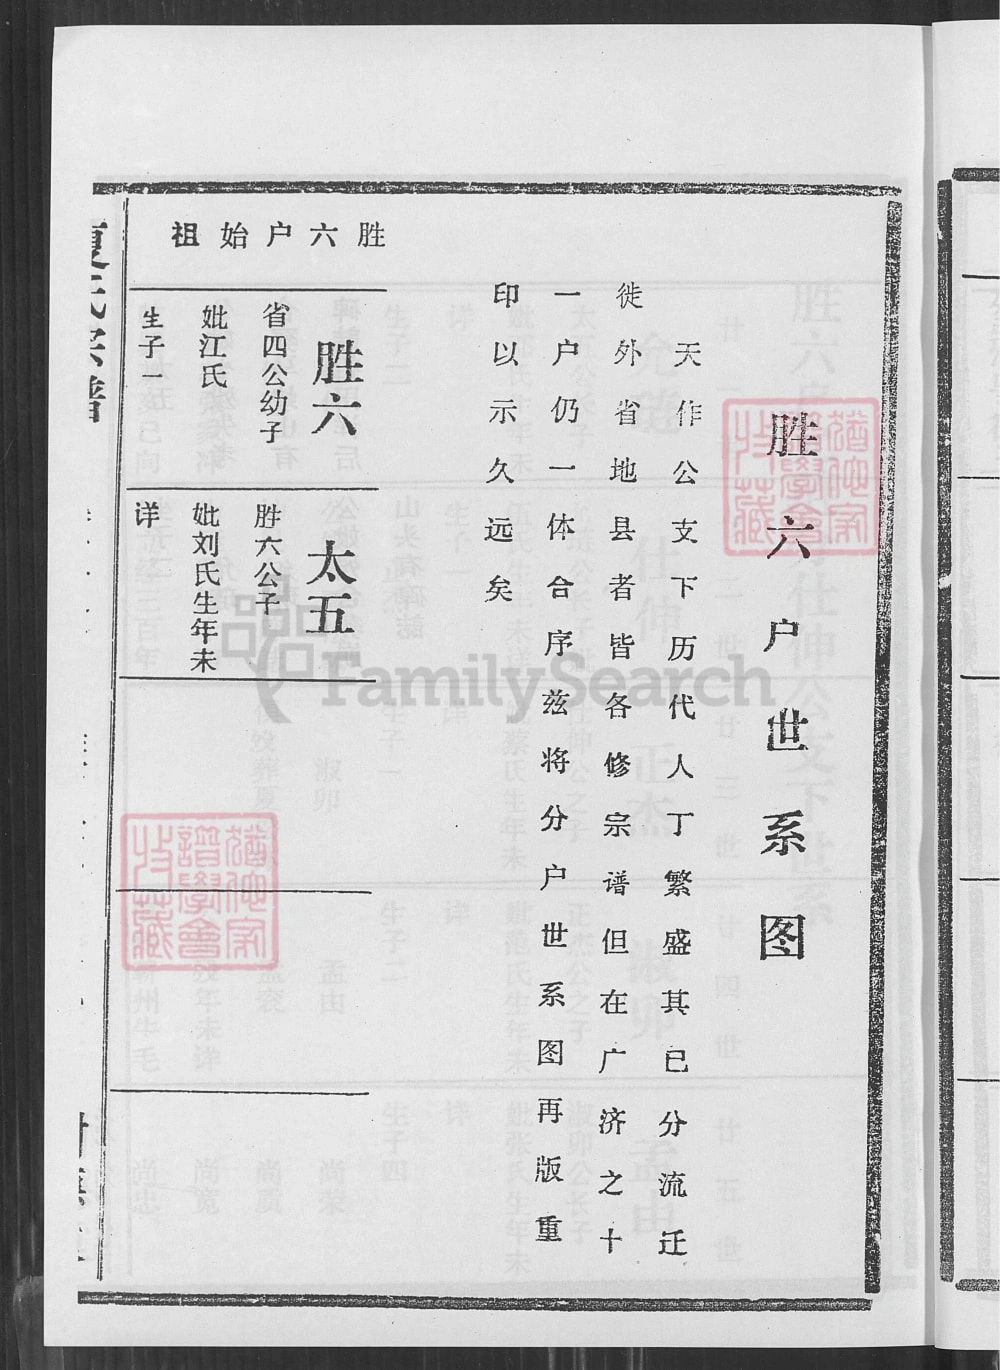 胜六户世系图
天作公支下历代人丁繁盛其已分流迁
徙外省地县者皆各修宗谱但在广济之十
一户仍一体合序兹将分户世系图再版重
印以示久远矣
胜六户始祖
胜六
省四公幼子
妣江氏
生子一
太五
胜六公子
妣刘氏生年未
详
夏氏宗谱
FamilySearch